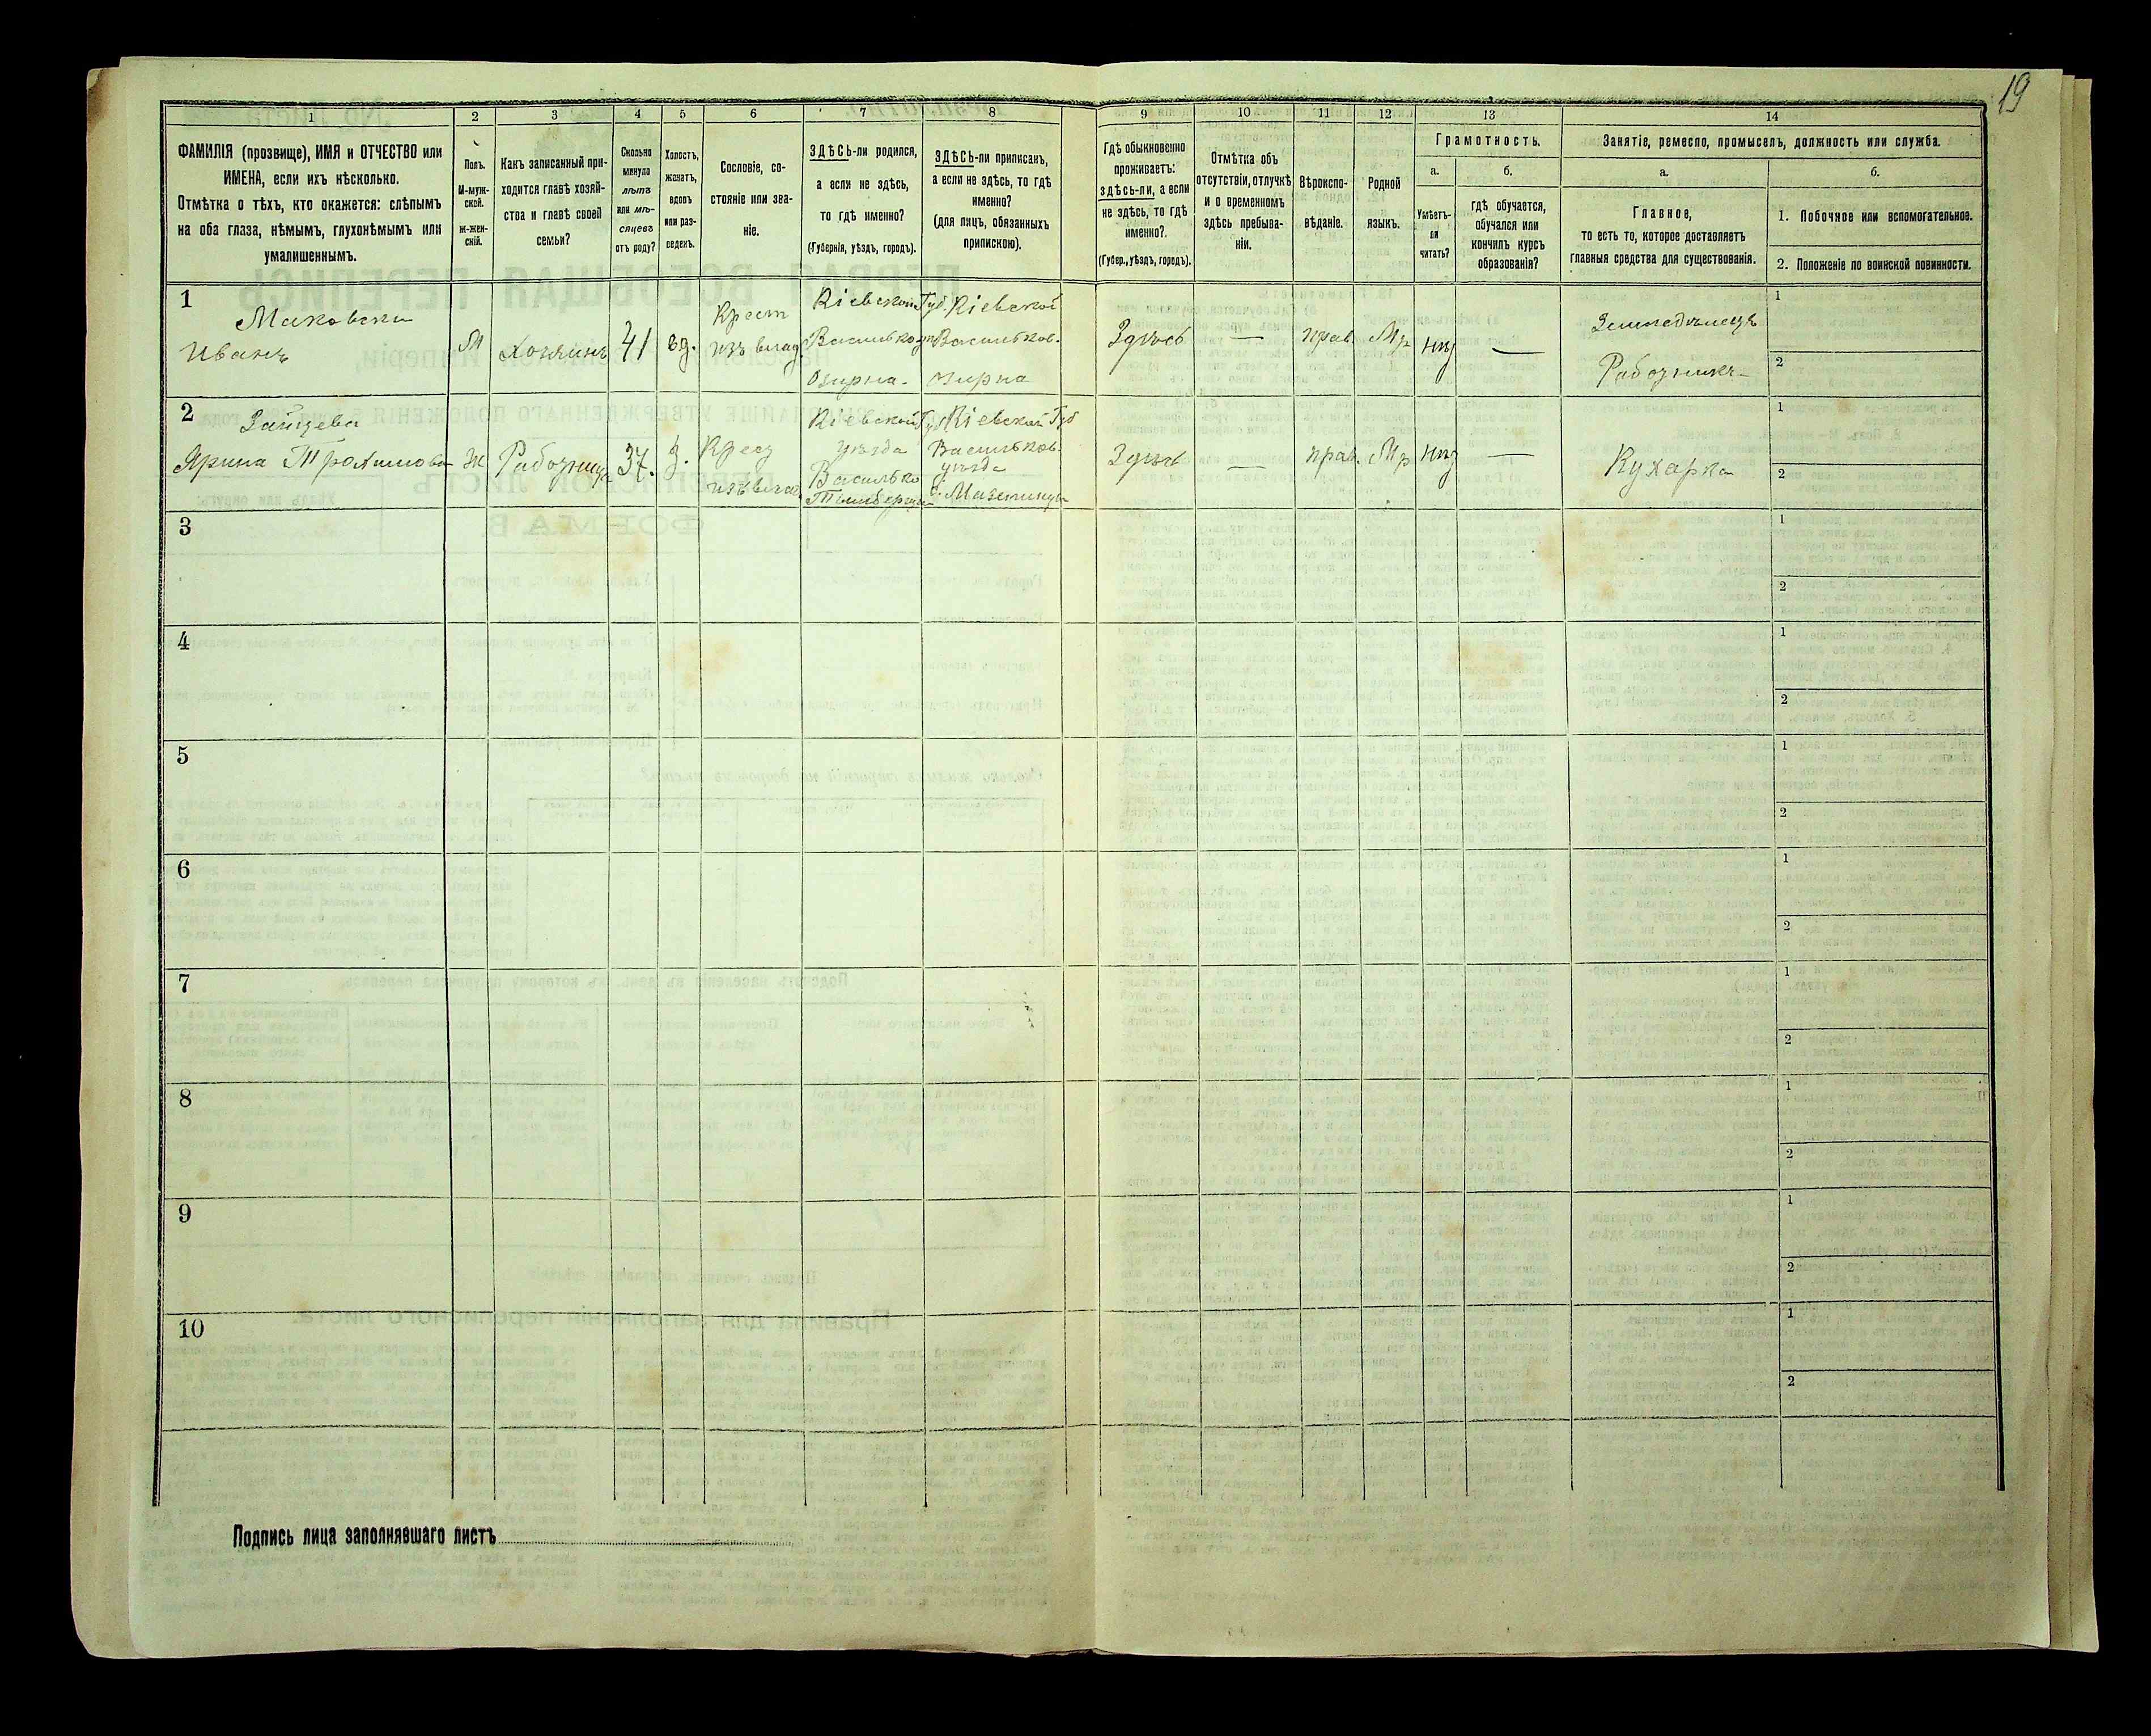 19
1
2
3
4
5
6
7
8
9
10
11
12
13
14
ФАМИЛІЯ (прозвище), ИМЯ и ОТЧЕСТВО или
ИМЕНА, если ихъ нѣсколько.
Отмѣтка о тѣхъ, кто окажется: слѣпымъ
на оба глаза, нѣмымъ, глухонѣмымъ или
умалишеннымъ.
Полъ.
М-муж-
ской.
Ж-жен-
скій.
Какъ записанный при-
ходится главѣ хозяй-
ства и главѣ своей
семьи?
Сколько
минуло
лѣтъ
или мѣ-
сяцевъ
отъ роду?
Холостъ,
женатъ,
вдовъ
или раз-
веденъ.
Сословіе, со-
стояніе или зва-
ніе.
ЗДѢСЬ-ли родился,
а если не здѣсь,
то гдѣ именно?
(Губернія, уѣздъ, городъ).
ЗДѢСЬ-ли приписанъ,
а если не здѣсь, то гдѣ
именно?
(для лицъ, обязанныхъ
припискою).
Гдѣ обыкновенно
проживаетъ:
здѣсь-ли, а если
не здѣсь, то гдѣ
именно?
(Губер., уѣздъ, городъ).
Отмѣтка объ
отсутствіи, отлучкѣ
и о временномъ
здѣсь пребыва-
ніи.
Вѣроиспо-
вѣданіе.
Родной
языкъ.
Грамотность.
а.
Умѣетъ-
ли
читать?
б.
гдѣ обучается,
обучался или
кончилъ курсъ
образованія?
Занятіе, ремесло, промыселъ, должность или служба.
а.
Главное,
то есть то, которое доставляетъ
главныя средства для существованія.
б.
1. Побочное или вспомогательное.
2. Положеніе по воинской повинности.
1
Маковски
Иванъ
М
Хозяинъ
41
вд.
Крест
изъ влад.
Кіевской Губ.
Василько
Озирна.
Кіевской
Васильков.
Озирна
Здѣсь
—
прав.
Мр
—
Земледѣлецъ
Работникъ
1
2
2
Зайцева
Ярина Трохимова
Ж
Работница
37.
Крест
изъ влад.
Кіевской Губ
уѣзда
Василько
Кіевской Губ
Васильков.
уѣзда
с. Мазепинцы
Здѣсь
—
прав.
Мр
—
Кухарка
1
2
3
1
2
4
1
2
5
1
2
6
1
2
7
1
2
8
1
2
9
1
2
10
1
2
Подпись лица заполнявшаго листъ